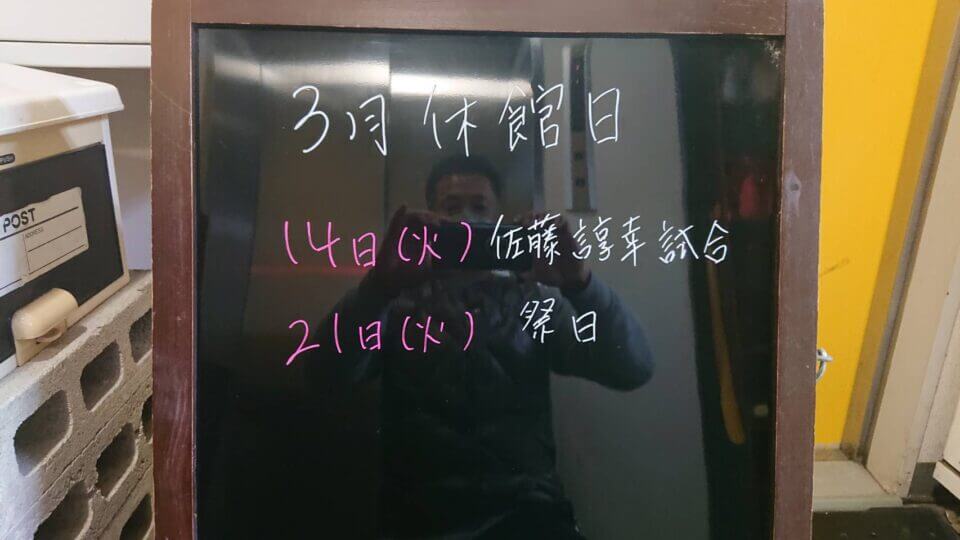 3月休館日
14日(火)佐藤諄幸試合
21日(火) 祭日
POST
ADDRESS
PUSH